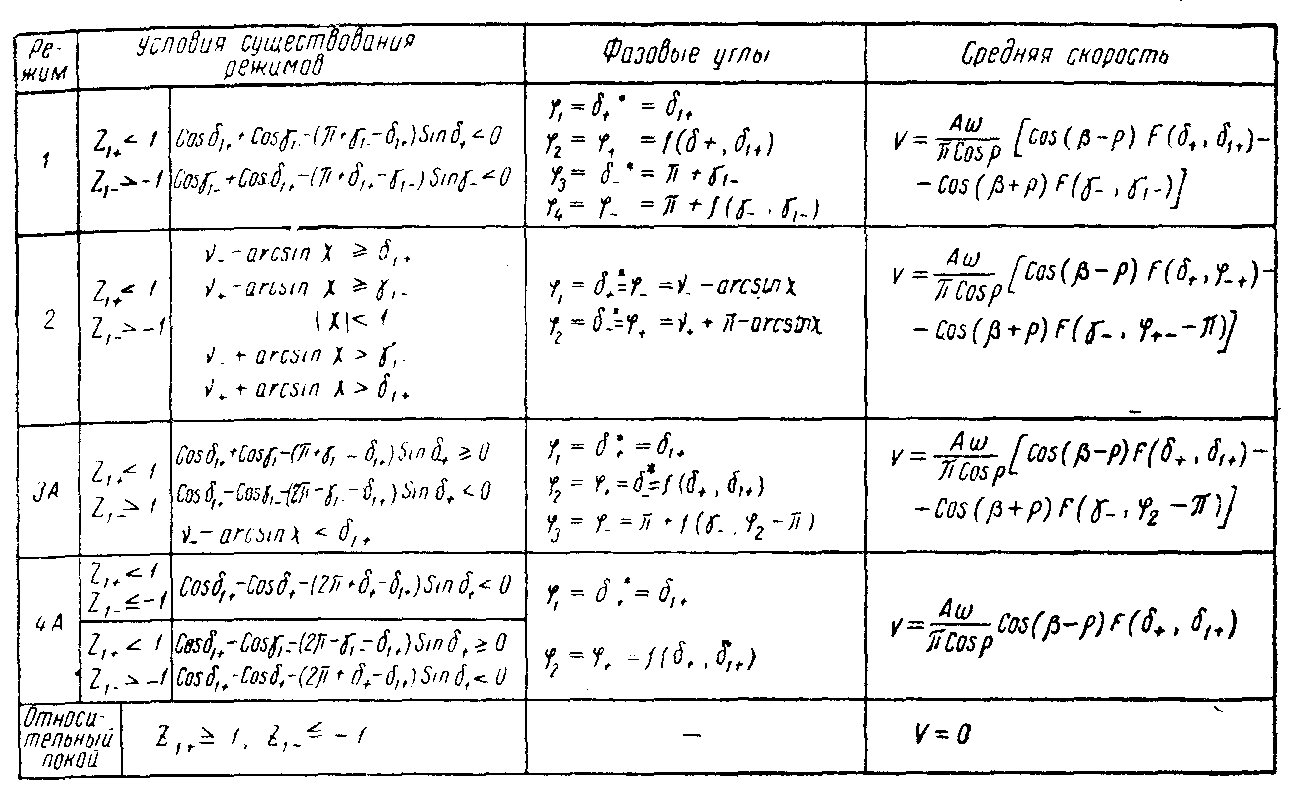 Ре-
жим
Условия существования
режимов
Фазовые углы
Средняя скорость
1
Z₁₊ < 1
Z₁₋ > -1
Cosδ₁₊ + Cosγ₁₋ - (π + γ₁₋ - δ₁₊) Sin δ₊ < 0
Cosγ₁₋ + Cosδ₁₊ - (π + δ₁₊ - γ₁₋) Sinγ₋ < 0
φ₁ = δ₊* = δ₁₊
φ₂ = φ₊ = f(δ₊, δ₁₊)
φ₃ = δ₋* = π + γ₁₋
φ₄ = φ₋ = π + f(γ₋, γ₁₋)
V = Aω / π Cos ρ [Cos(β-ρ) F(δ₊, δ₁₊) -
- Cos(β+ρ) F(γ₋, γ₁₋)]
2
Z₁₊ < 1
Z₁₋ > -1
ν₋ - arcsin χ ≥ δ₁₊
ν₊ - arcsin χ ≥ γ₁₋
|χ| < 1
ν₋ + arcsin χ > γ₁₋
ν₊ + arcsin χ > δ₁₊
φ₁ = δ₊* = φ₋ = ν₋ - arcsin χ
φ₂ = δ₋* = φ₊ = ν₊ + π - arcsin χ
V = Aω / π Cos ρ [Cos(β-ρ) F(δ₊, φ₋₊) -
- Cos(β+ρ) F(γ₋, φ₊₋ - π)]
3А
Z₁₊ < 1
Z₁₋ > 1
Cosδ₁₊ + Cosγ₁ - (π + γ₁ - δ₁₊) Sin δ₊ ≥ 0
Cosδ₁₊ - Cosγ₁₋ - (2π - γ₁₋ - δ₁₊) Sin δ₊ < 0
ν₋ - arcsin χ < δ₁₊
φ₁ = δ₊* = δ₁₊
φ₂ = φ₊ = δ₋* = f(δ₊, δ₁₊)
φ₃ = φ₋ = π + f(γ₋, φ₂ - π)
V = Aω / π Cos ρ [Cos(β-ρ) F(δ₊, δ₁₊) -
- Cos(β+ρ) F(γ₋, φ₂ - π)]
4А
Z₁₊ < 1
Z₁₋ ≤ -1
Cosδ₁₊ - Cosδ₊ - (2π + δ₊ - δ₁₊) Sin δ₊ < 0
Z₁₊ < 1
Z₁₋ > -1
Cosδ₁₊ - Cosγ₁₋ - (2π - γ₁₋ - δ₁₊) Sin δ₊ ≥ 0
Cosδ₁₊ - Cosδ₊ - (2π + δ₊ - δ₁₊) Sin δ₊ < 0
φ₁ = δ₊* = δ₁₊
φ₂ = φ₊ = f(δ₊, δ₁₊)
V = Aω / π Cos ρ Cos(β-ρ) F(δ₊, δ₁₊)
Относи-
тельный
покой
Z₁₊ ≥ 1, Z₁₋ ≤ -1
—
V = 0